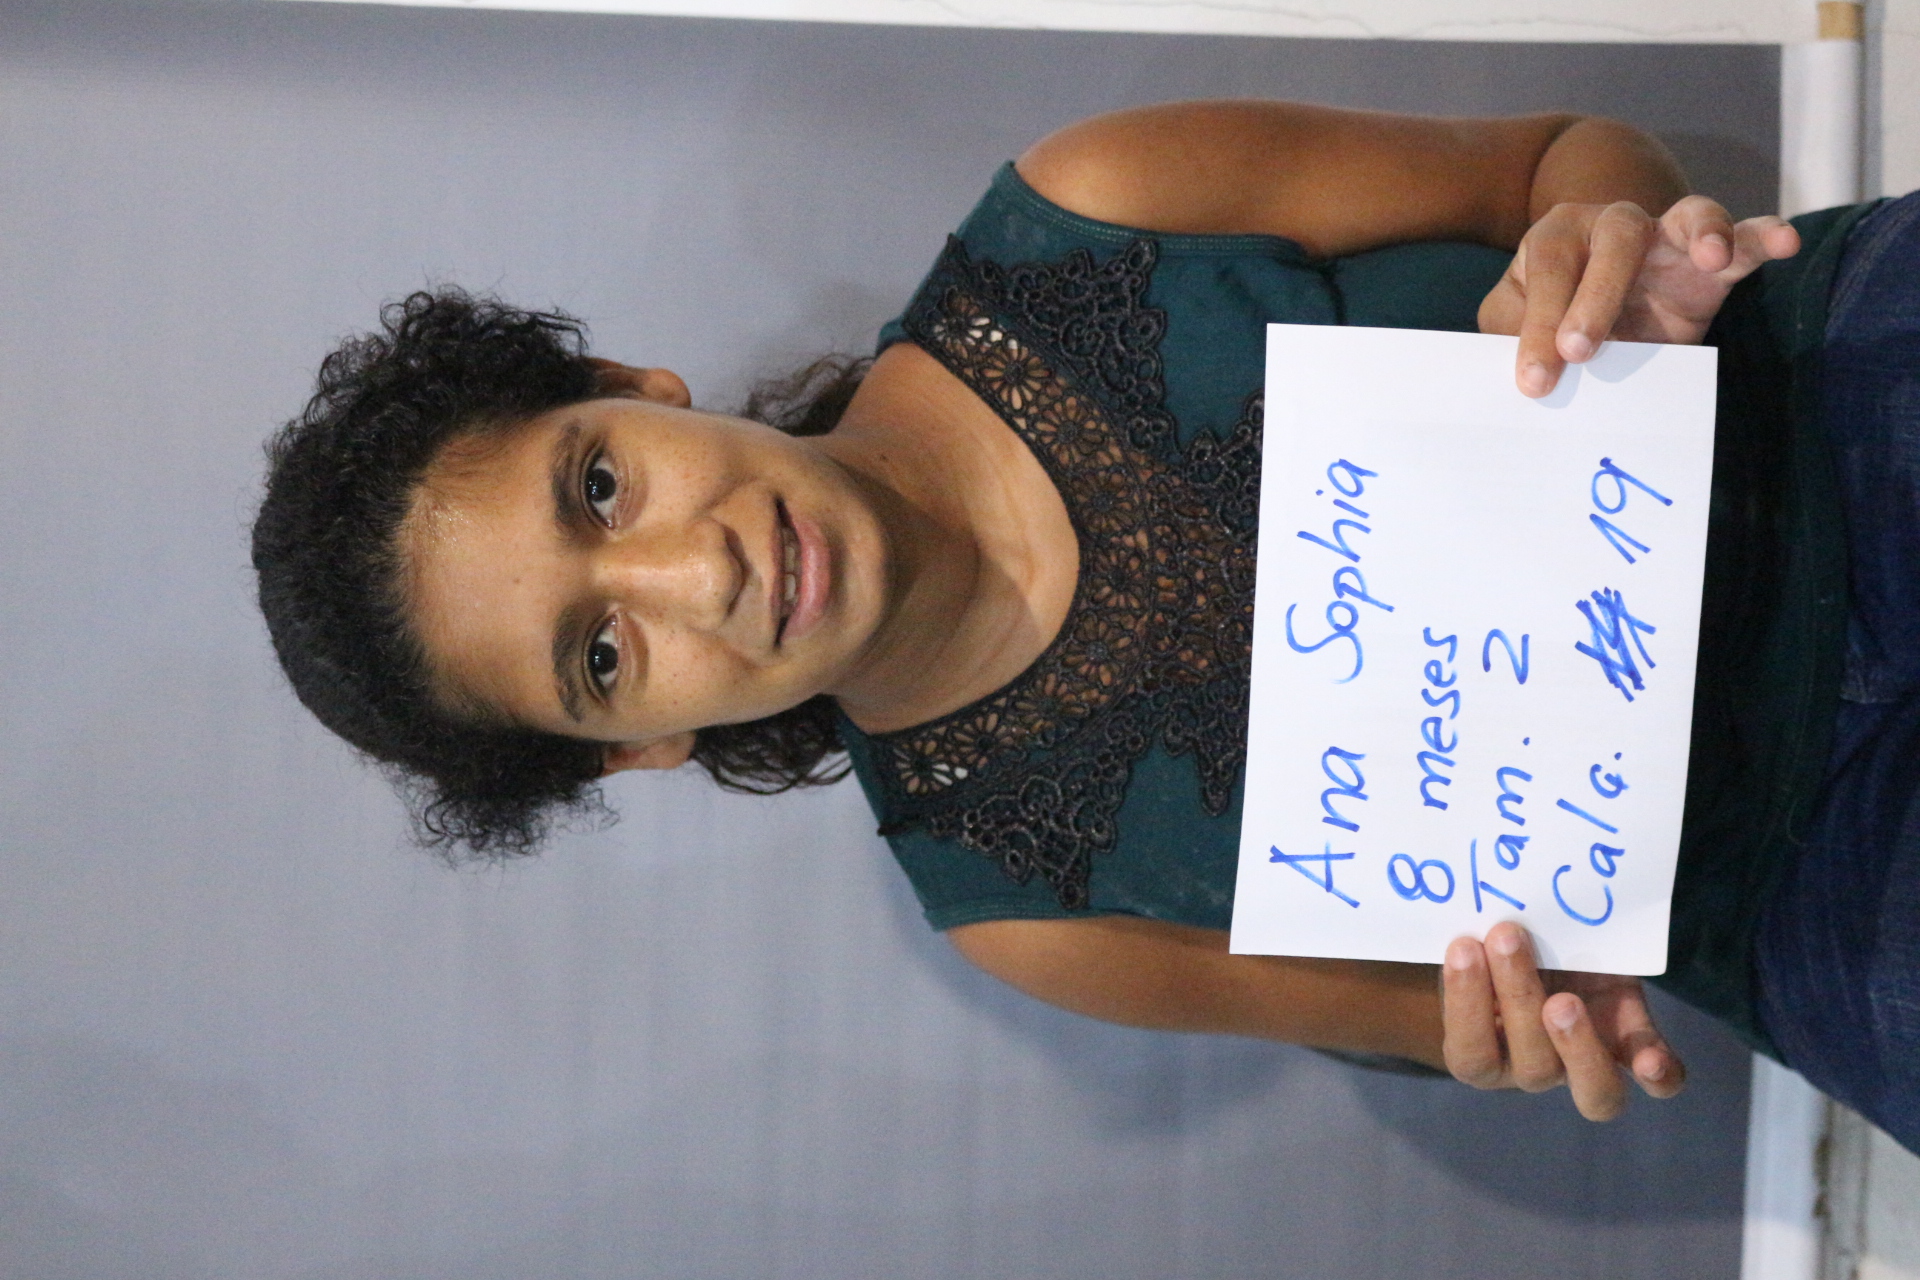 Ana Sophia
8 meses
Tam. 2
Calç. 19